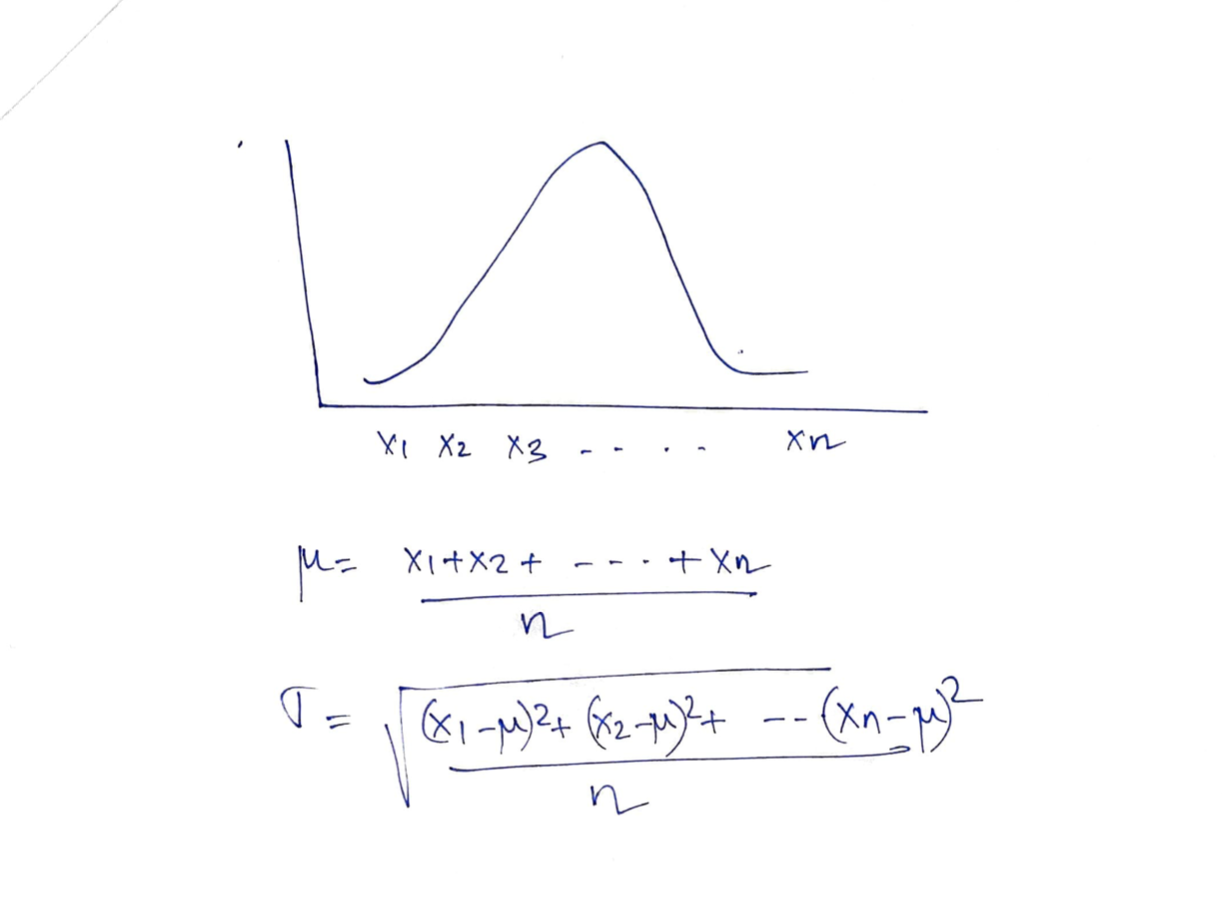 x1 x2 x3 - - . . xn
μ = x1+x2+ - - - . + xn
n
σ = √(x1-μ)2+ (x2-μ)2+ -- (xn-μ)2
n